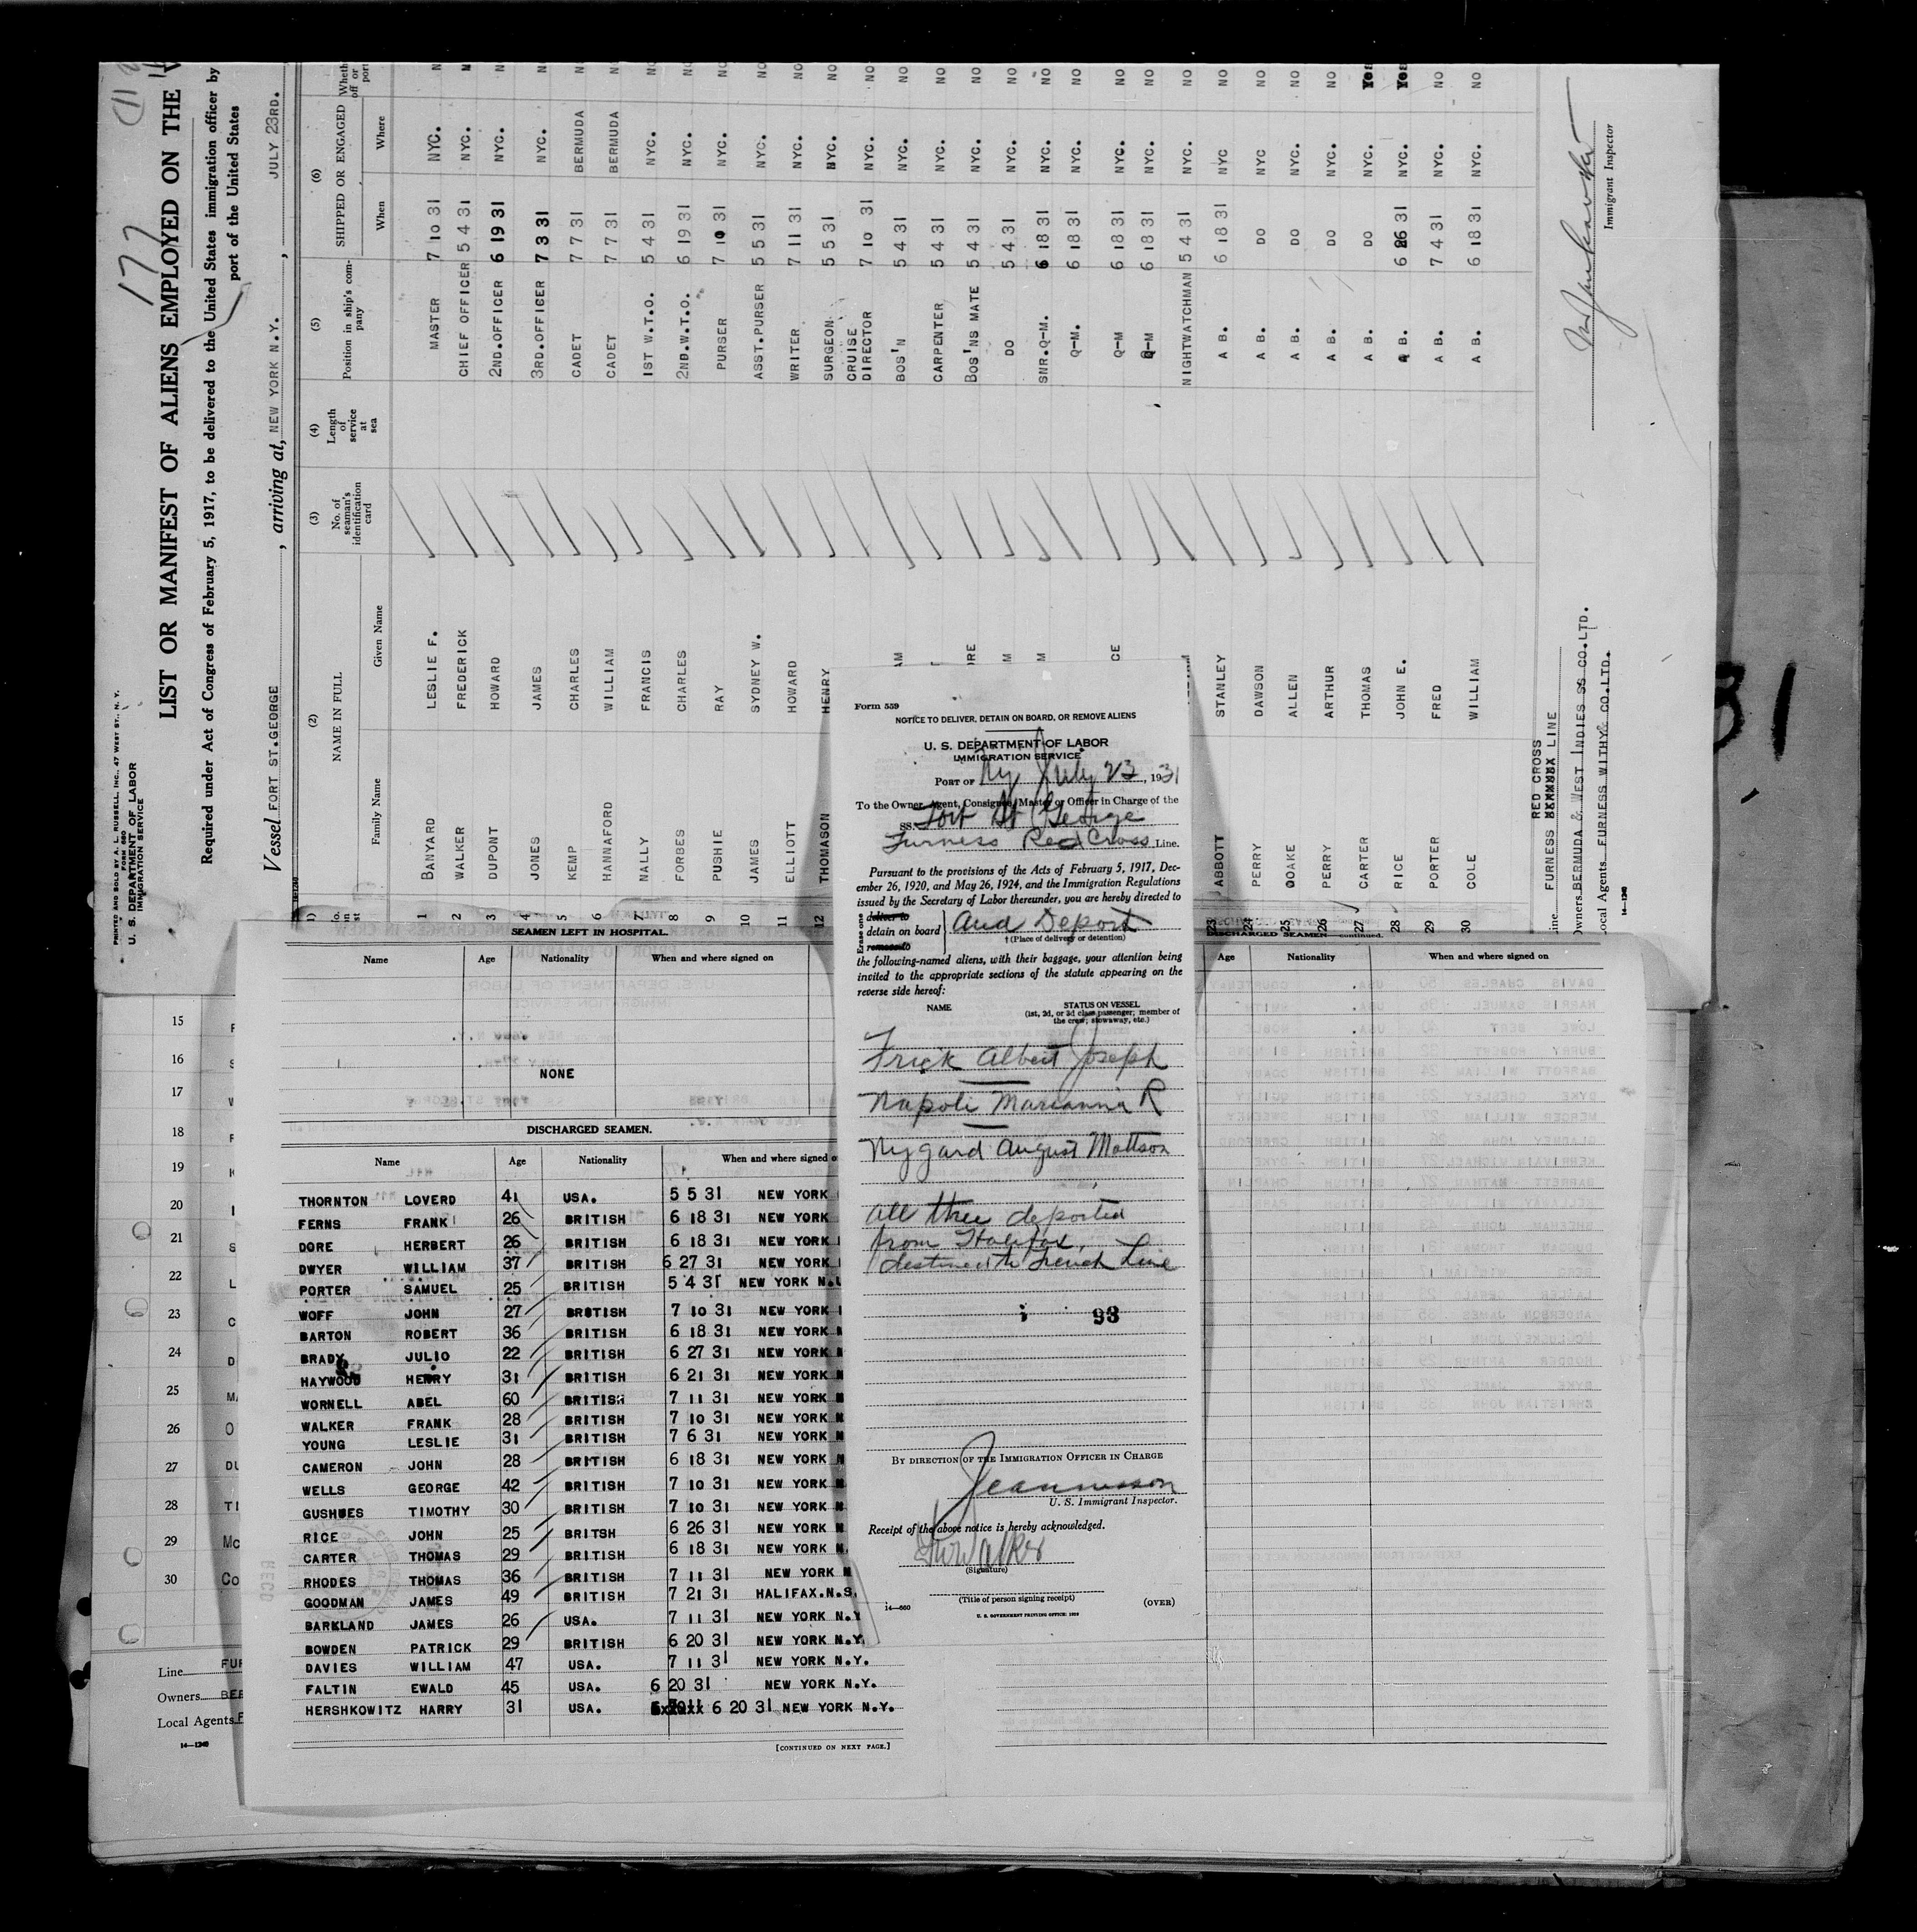 177
PRINTED AND SOLD BY A. L. RUSSELL, INC., 47 WEST ST., N. Y.
FORM 680
U. S. DEPARTMENT OF LABOR
IMMIGRATION SERVICE
LIST OR MANIFEST OF ALIENS EMPLOYED ON THE
Required under Act of Congress of February 5, 1917, to be delivered to the United States immigration officer by
port of the United States
Vessel FORT ST.GEORGE, arriving at, NEW YORK N.Y., JULY 23RD.
(2) NAME IN FULL (3) No. of seaman's identification card (4) Length of service at sea (5) Position in ship's company (6) SHIPPED OR ENGAGED
Family Name Given Name When Where
1 BANYARD LESLIE F. MASTER 7 10 31 NYC. NO
2 WALKER FREDERICK CHIEF OFFICER 5 4 31 NYC. NO
3 DUPONT HOWARD 2ND.OFFICER 6 19 31 NYC. NO
4 JONES JAMES 3RD.OFFICER 7 3 31 NYC. NO
5 KEMP CHARLES CADET 7 7 31 BERMUDA NO
6 HANNAFORD WILLIAM CADET 7 7 31 BERMUDA NO
7 NALLY FRANCIS 1ST W.T.O. 5 4 31 NYC. NO
8 FORBES CHARLES 2ND.W.T.O. 6 19 31 NYC. NO
9 PUSHIE RAY PURSER 7 10 31 NYC. NO
10 JAMES SYDNEY W. ASST.PURSER 5 5 31 NYC. NO
11 ELLIOTT HOWARD WRITER 7 11 31 NYC. NO
12 THOMASON HENRY SURGEON 5 5 31 NYC. NO
CRUISE DIRECTOR 7 10 31 NYC. NO
BOS'N 5 4 31 NYC. NO
CARPENTER 5 4 31 NYC. NO
BOS'NS MATE 5 4 31 NYC. NO
DO 5 4 31 NYC. NO
SNR.Q-M. 6 18 31 NYC. NO
Q-M. 6 18 31 NYC. NO
Q-M 6 18 31 NYC. NO
Q-M 6 18 31 NYC. NO
NIGHTWATCHMAN 5 4 31 NYC. NO
23 ABBOTT STANLEY A B. 6 18 31 NYC NO
24 PERRY DAWSON A B. DO NYC NO
25 DOAKE ALLEN A B. DO NYC. NO
26 PERRY ARTHUR A B. DO NYC. NO
27 CARTER THOMAS A B. DO NYC. Yes
28 RICE JOHN E. A B. 6 26 31 NYC. Yes
29 PORTER FRED A B. 7 4 31 NYC. NO
30 COLE WILLIAM A B. 6 18 31 NYC. NO
RED CROSS
FURNESS LINE
Owners BERMUDA & WEST INDIES SS CO.LTD.
Local Agents FURNESS WITHY & CO.LTD.
14—1240
Immigrant Inspector
31
Form 559
NOTICE TO DELIVER, DETAIN ON BOARD, OR REMOVE ALIENS
U. S. DEPARTMENT OF LABOR
IMMIGRATION SERVICE
PORT OF Ny July 23, 1931
To the Owner, Agent, Consignee, Master or Officer in Charge of the
SS. Fort St George
Furness Red Cross Line.
Pursuant to the provisions of the Acts of February 5, 1917, Dec-
ember 26, 1920, and May 26, 1924, and the Immigration Regulations
issued by the Secretary of Labor thereunder, you are hereby directed to
Erase one
deliver to
detain on board And Deport
remove to
† (Place of delivery or detention)
the following-named aliens, with their baggage, your attention being
invited to the appropriate sections of the statute appearing on the
reverse side hereof:
NAME STATUS ON VESSEL
(1st, 2d, or 3d class passenger; member of
the crew; stowaway, etc.)
Frick Albert Joseph
Napoli Marianna R
Nygard August Mattson
All three deported
from Halifax,
destined to French Line
93
BY DIRECTION OF THE IMMIGRATION OFFICER IN CHARGE
U. S. Immigrant Inspector.
Receipt of the above notice is hereby acknowledged.
Walker
(Signature)
(Title of person signing receipt)
(OVER)
14—660
U. S. GOVERNMENT PRINTING OFFICE: 1929
SEAMEN LEFT IN HOSPITAL.
Name Age Nationality When and where signed on
NONE
DISCHARGED SEAMEN.
Name Age Nationality When and where signed o
THORNTON LOVERD 41 USA. 5 5 31 NEW YORK
FERNS FRANK 26 BRITISH 6 18 31 NEW YORK
DORE HERBERT 26 BRITISH 6 18 31 NEW YORK
DWYER WILLIAM 37 BRITISH 6 27 31 NEW YORK
PORTER SAMUEL 25 BRITISH 5 4 31 NEW YORK N.
WOFF JOHN 27 BRITISH 7 10 31 NEW YORK
BARTON ROBERT 36 BRITISH 6 18 31 NEW YORK N
BRADY JULIO 22 BRITISH 6 27 31 NEW YORK N
HAYWOOD HENRY 31 BRITISH 6 21 31 NEW YORK N
WORNELL ABEL 60 BRITISH 7 11 31 NEW YORK N
WALKER FRANK 28 BRITISH 7 10 31 NEW YORK N
YOUNG LESLIE 31 BRITISH 7 6 31 NEW YORK N
CAMERON JOHN 28 BRITISH 6 18 31 NEW YORK N
WELLS GEORGE 42 BRITISH 7 10 31 NEW YORK N
GUSHUES TIMOTHY 30 BRITISH 7 10 31 NEW YORK N
RICE JOHN 25 BRITSH 6 26 31 NEW YORK N
CARTER THOMAS 29 BRITISH 6 18 31 NEW YORK N.
RHODES THOMAS 36 BRITISH 7 11 31 NEW YORK N
GOODMAN JAMES 49 BRITISH 7 21 31 HALIFAX.N.S.
BARKLAND JAMES 26 USA. 7 11 31 NEW YORK N.Y
BOWDEN PATRICK 29 BRITISH 6 20 31 NEW YORK N.Y.
DAVIES WILLIAM 47 USA. 7 11 31 NEW YORK N.Y.
FALTIN EWALD 45 USA. 6 20 31 NEW YORK N.Y.
HERSHKOWITZ HARRY 31 USA. 6 20 31 NEW YORK N.Y.
[CONTINUED ON NEXT PAGE.]
DISCHARGED SEAMEN—continued.
Age Nationality When and where signed on
15
16
17
18
19
20
21
22
23
24
25
26
27
28
29
30
Line FUR
Owners BER
Local Agents F
14—1240